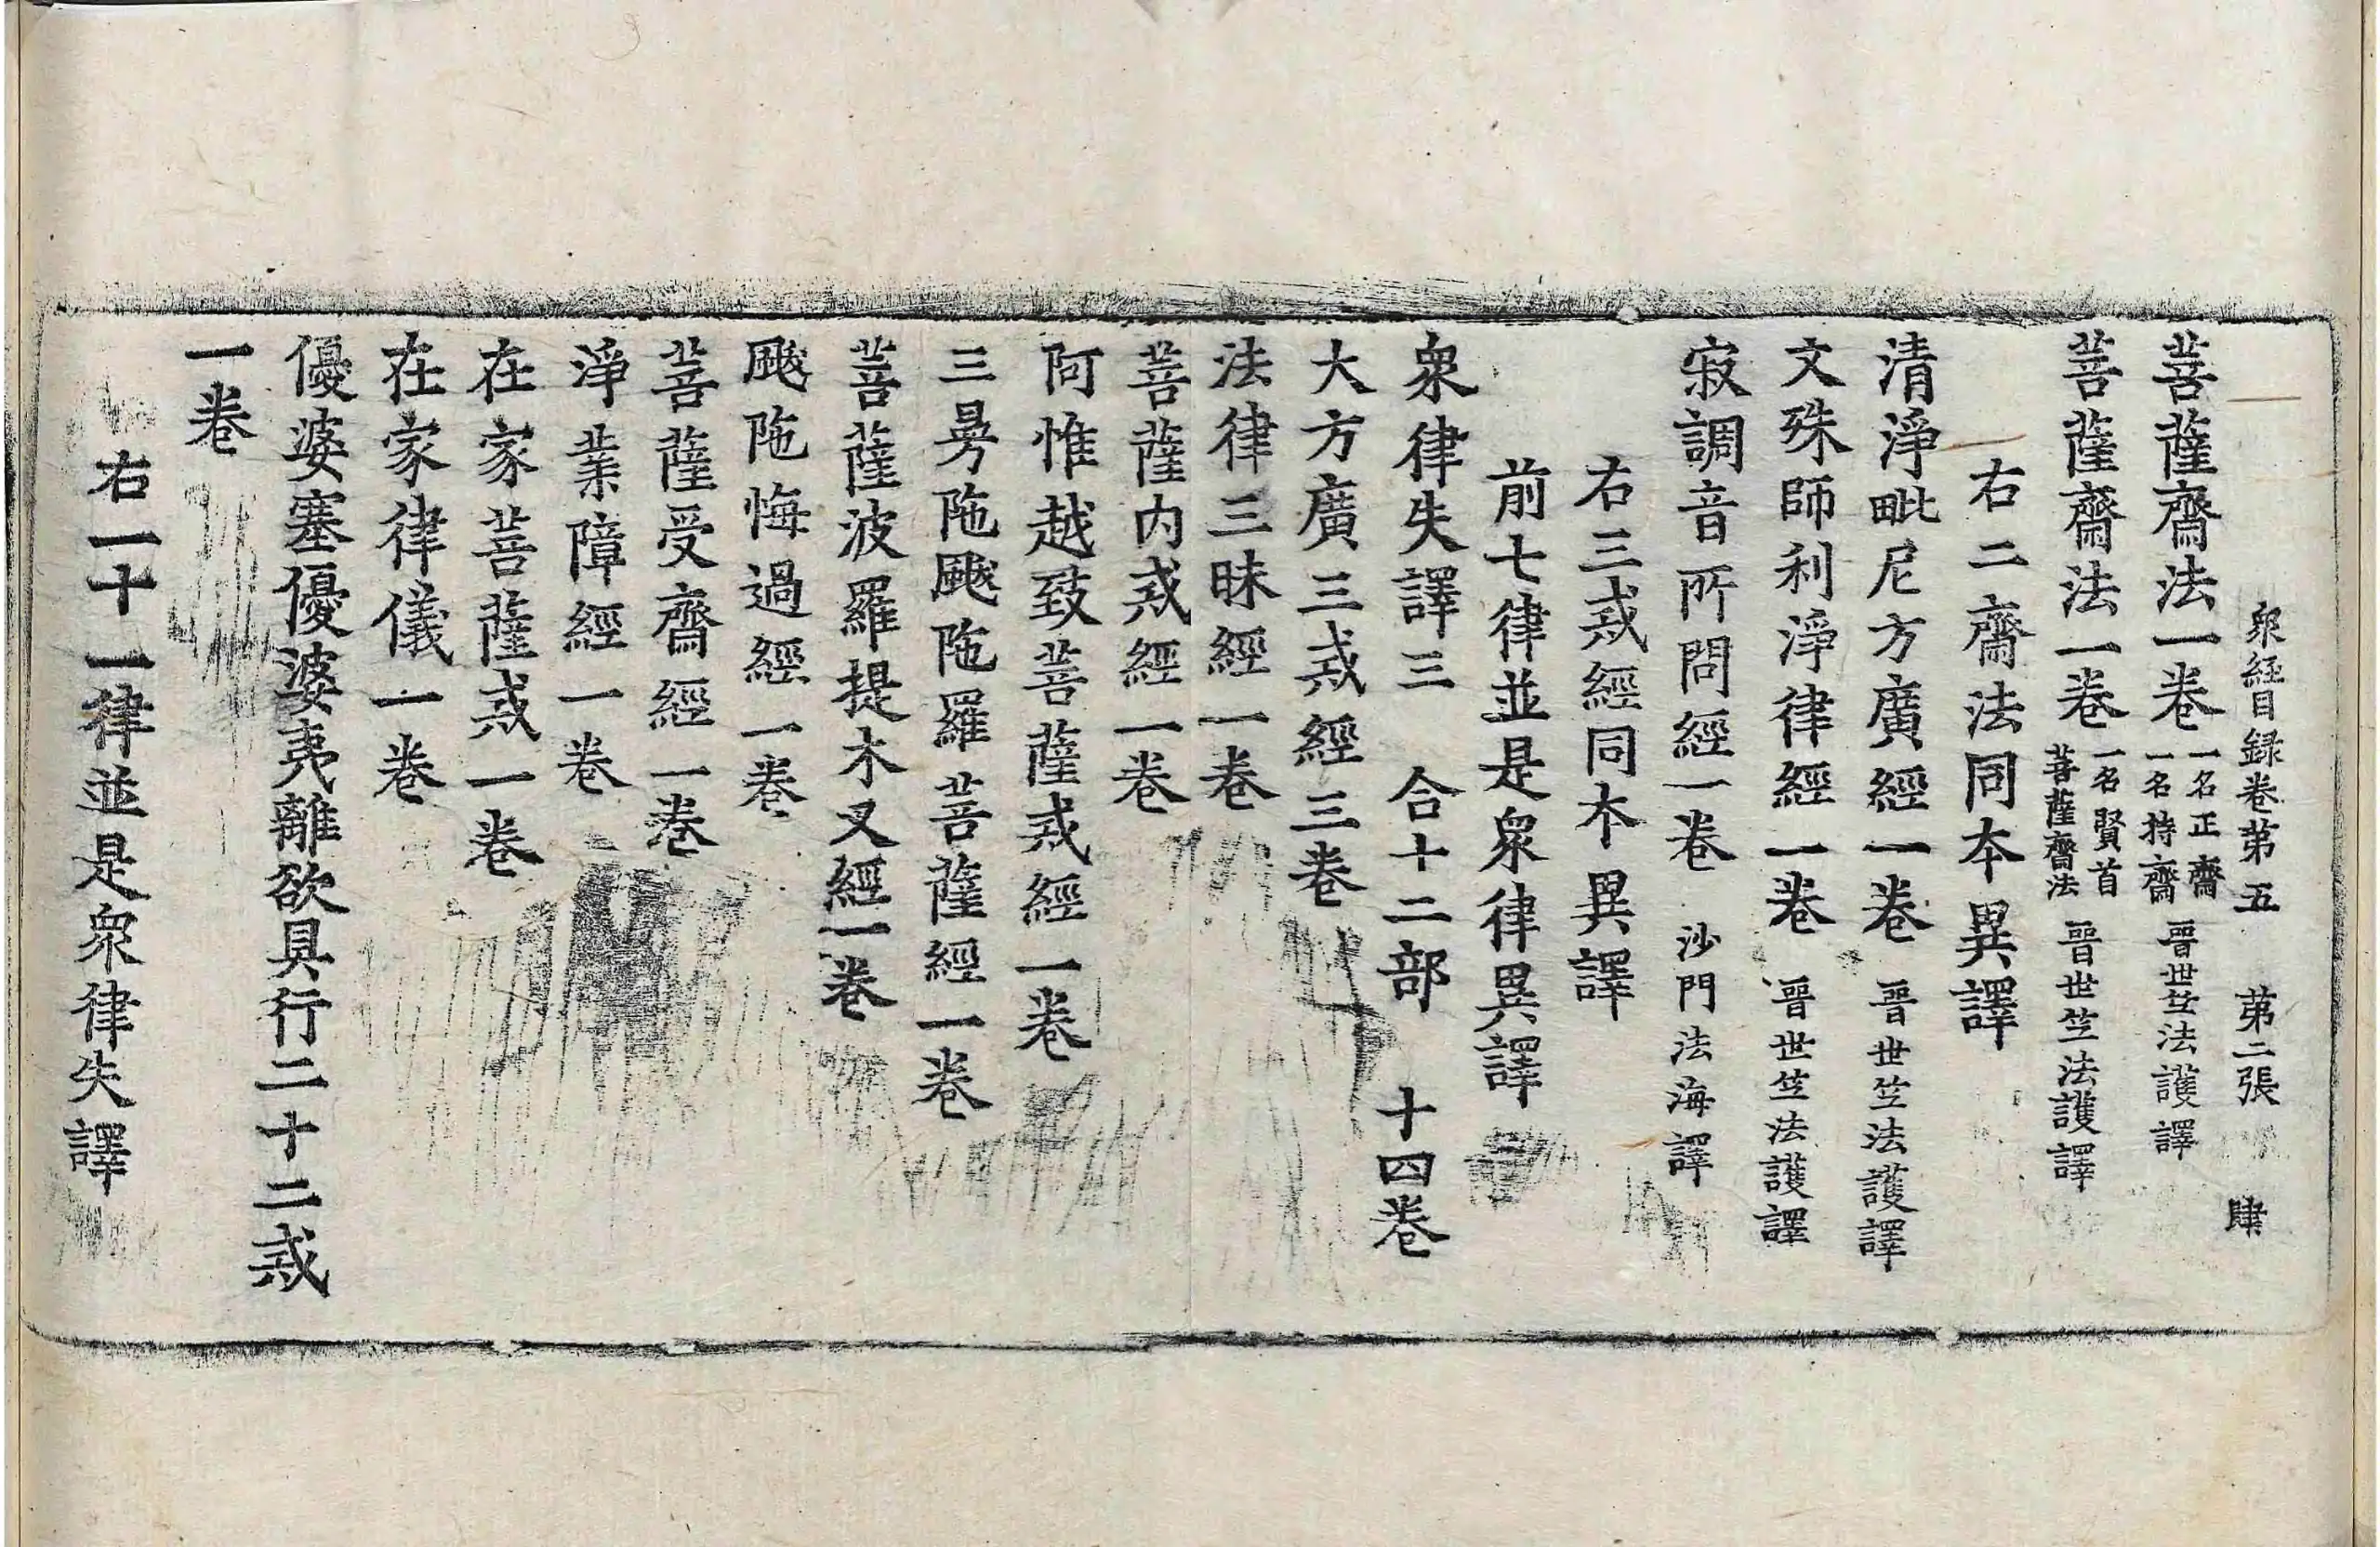 衆經目録卷第五 第二張 肆
菩薩齋法一卷 一名正齋 一名持齋 晉世竺法護譯
菩薩齋法一卷 一名賢首 菩薩齋法 晉世竺法護譯
右二齋法同本異譯
清淨毗尼方廣經一卷 晉世竺法護譯
文殊師利淨律經一卷 晉世竺法護譯
寂調音所問經一卷 沙門法海譯
右三戒經同本異譯
前七律並是衆律異譯
衆律失譯三 合十二部 十四卷
大方廣三戒經三卷
法律三昧經一卷
菩薩内戒經一卷
阿惟越致菩薩戒經一卷
三曼陁颰陁羅菩薩經一卷
菩薩波羅提木叉經一卷
颰陁悔過經一卷
菩薩受齋經一卷
淨業障經一卷
在家菩薩戒一卷
在家律儀一卷
優婆塞優婆夷離欲具行二十二戒
一卷
右一十一律並是衆律失譯